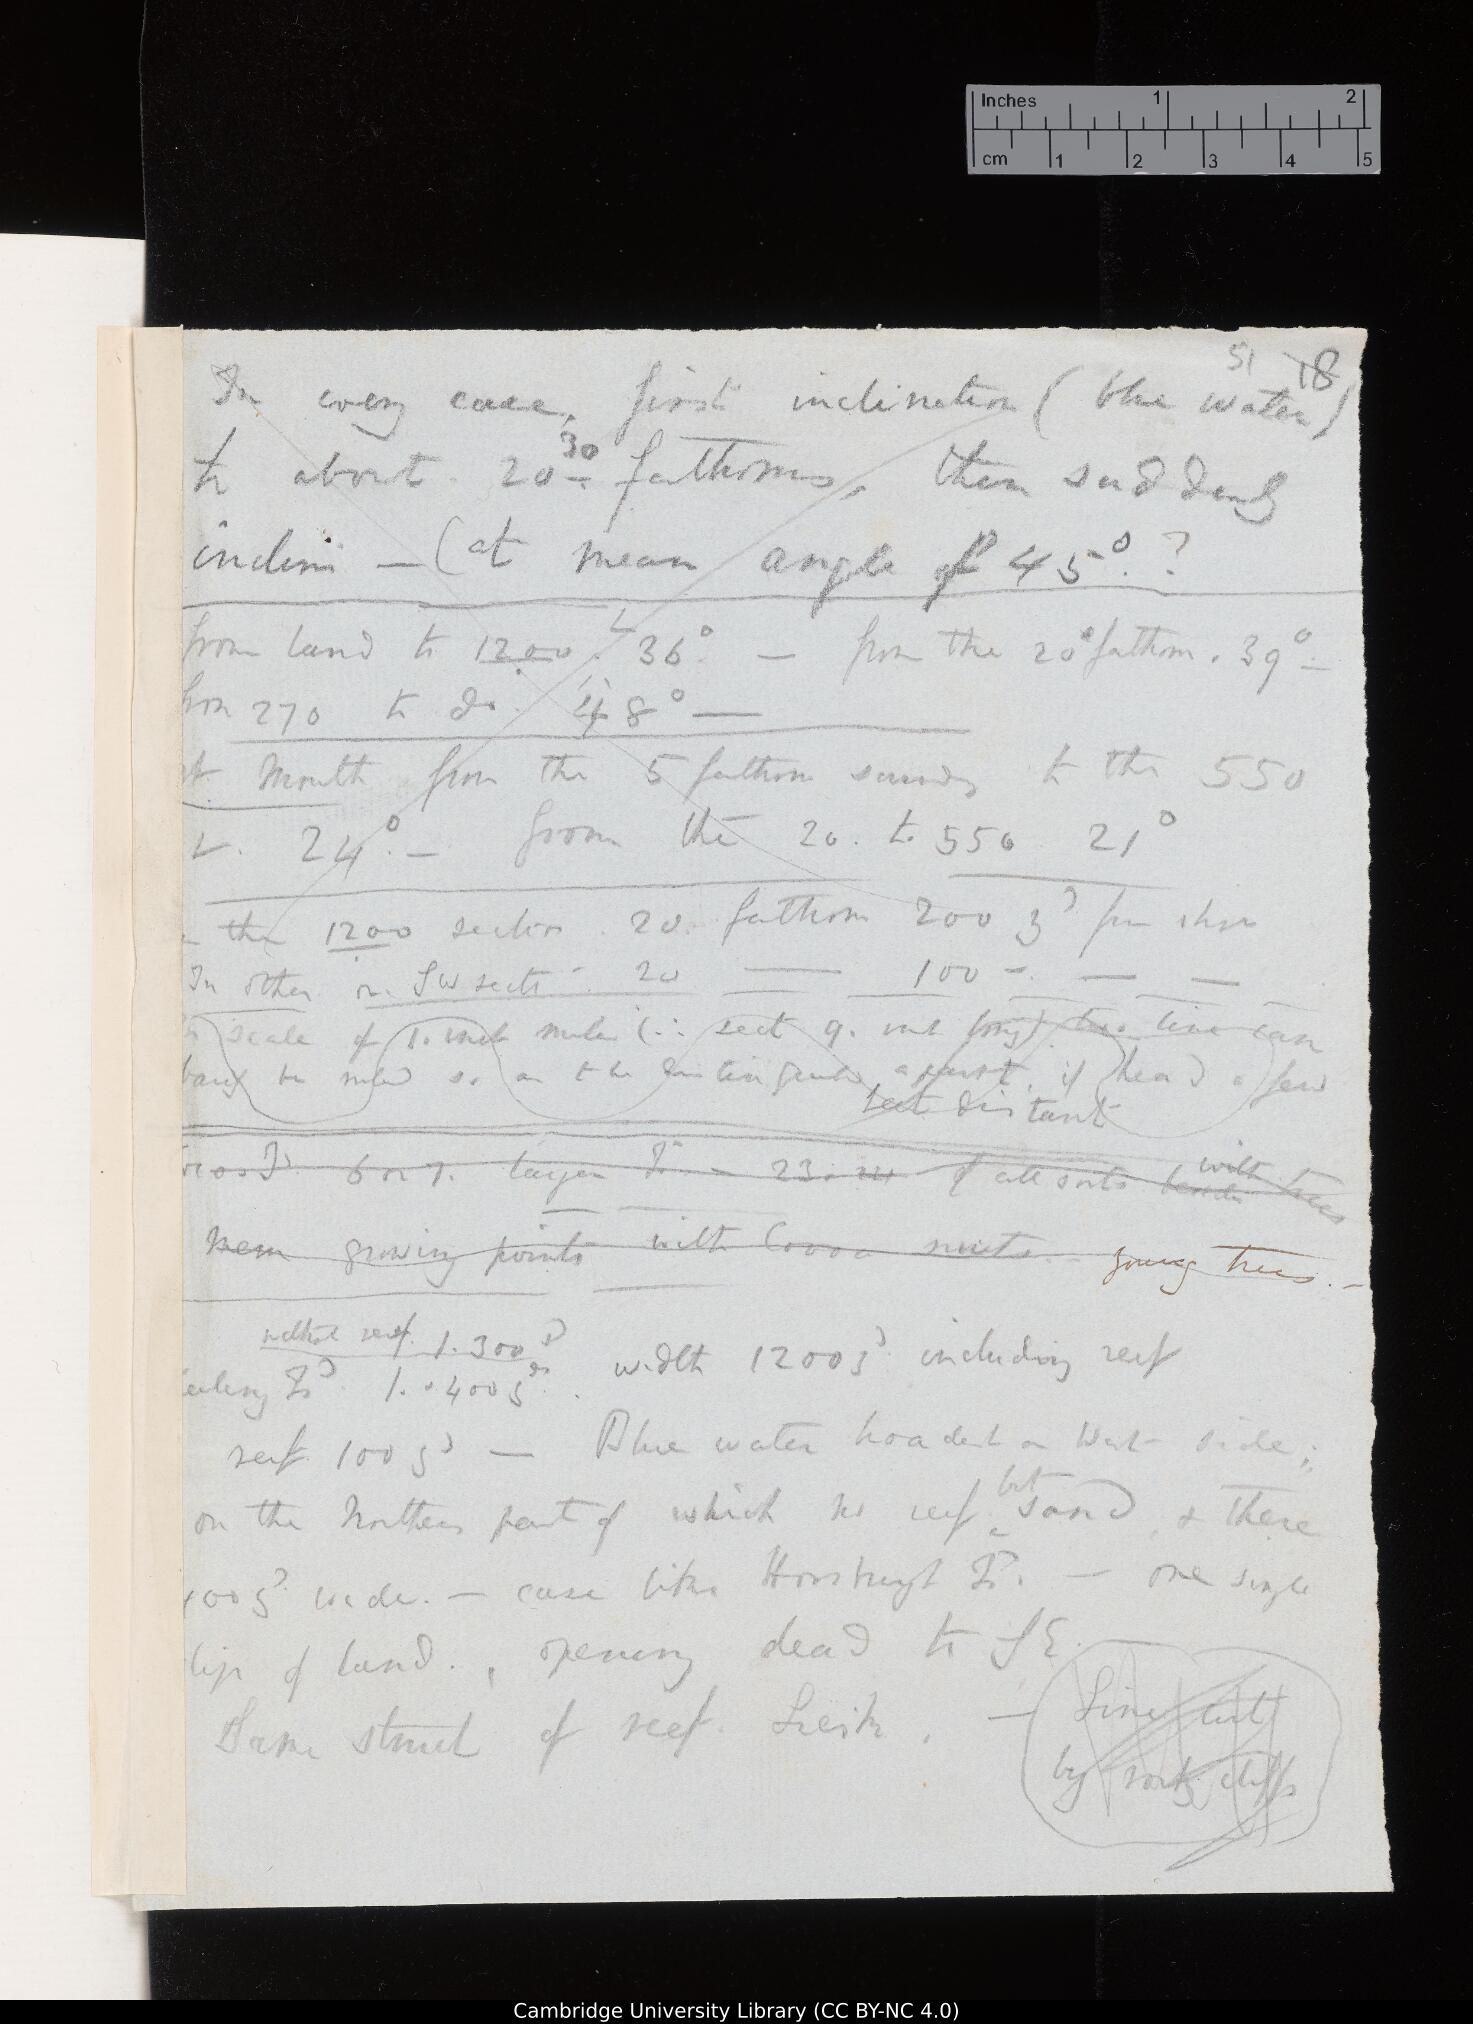 Inches 1 2
cm 1 2 3 4 5
51 18
In every case, first inclination (blue water)
to about 20-30 fathoms, then suddenly
inclini — (at mean angle of 45°.?
from land to 1200. 36°. — from the 20 fathom. 39°—
from 270 to do. 48° —
at Mouth from the 5 fathom sounding to the 550
24°.— from the 20. to 550 21°
the 1200 section. 20. fathom 200 yd from shore
In other or SW sect. 20 — 100 —. — —
scale of 1. inch mile (∴ sect 9. inch long). two line can
be ruled so as to be distinguished apart, if head a few
feet distant
6 or 7. larger Is. — 23. 24 of all sorts with trees
New growing points with Cocoa nuts. — young trees. —
without reef. 1.300 yd
Keeling Id. 1..400 yds. width 1200 yd. including reef
reef. 100 yd — Blue water broadest on West side;
on the Northern part of which no reef but sand, & there
400 yd. wide. — case like Horsburgh Id. — one single
slip of land., opening dead to SE.
Same struct of reef. Leisk. —
Line cut
by rocky cliffs
Cambridge University Library (CC BY-NC 4.0)